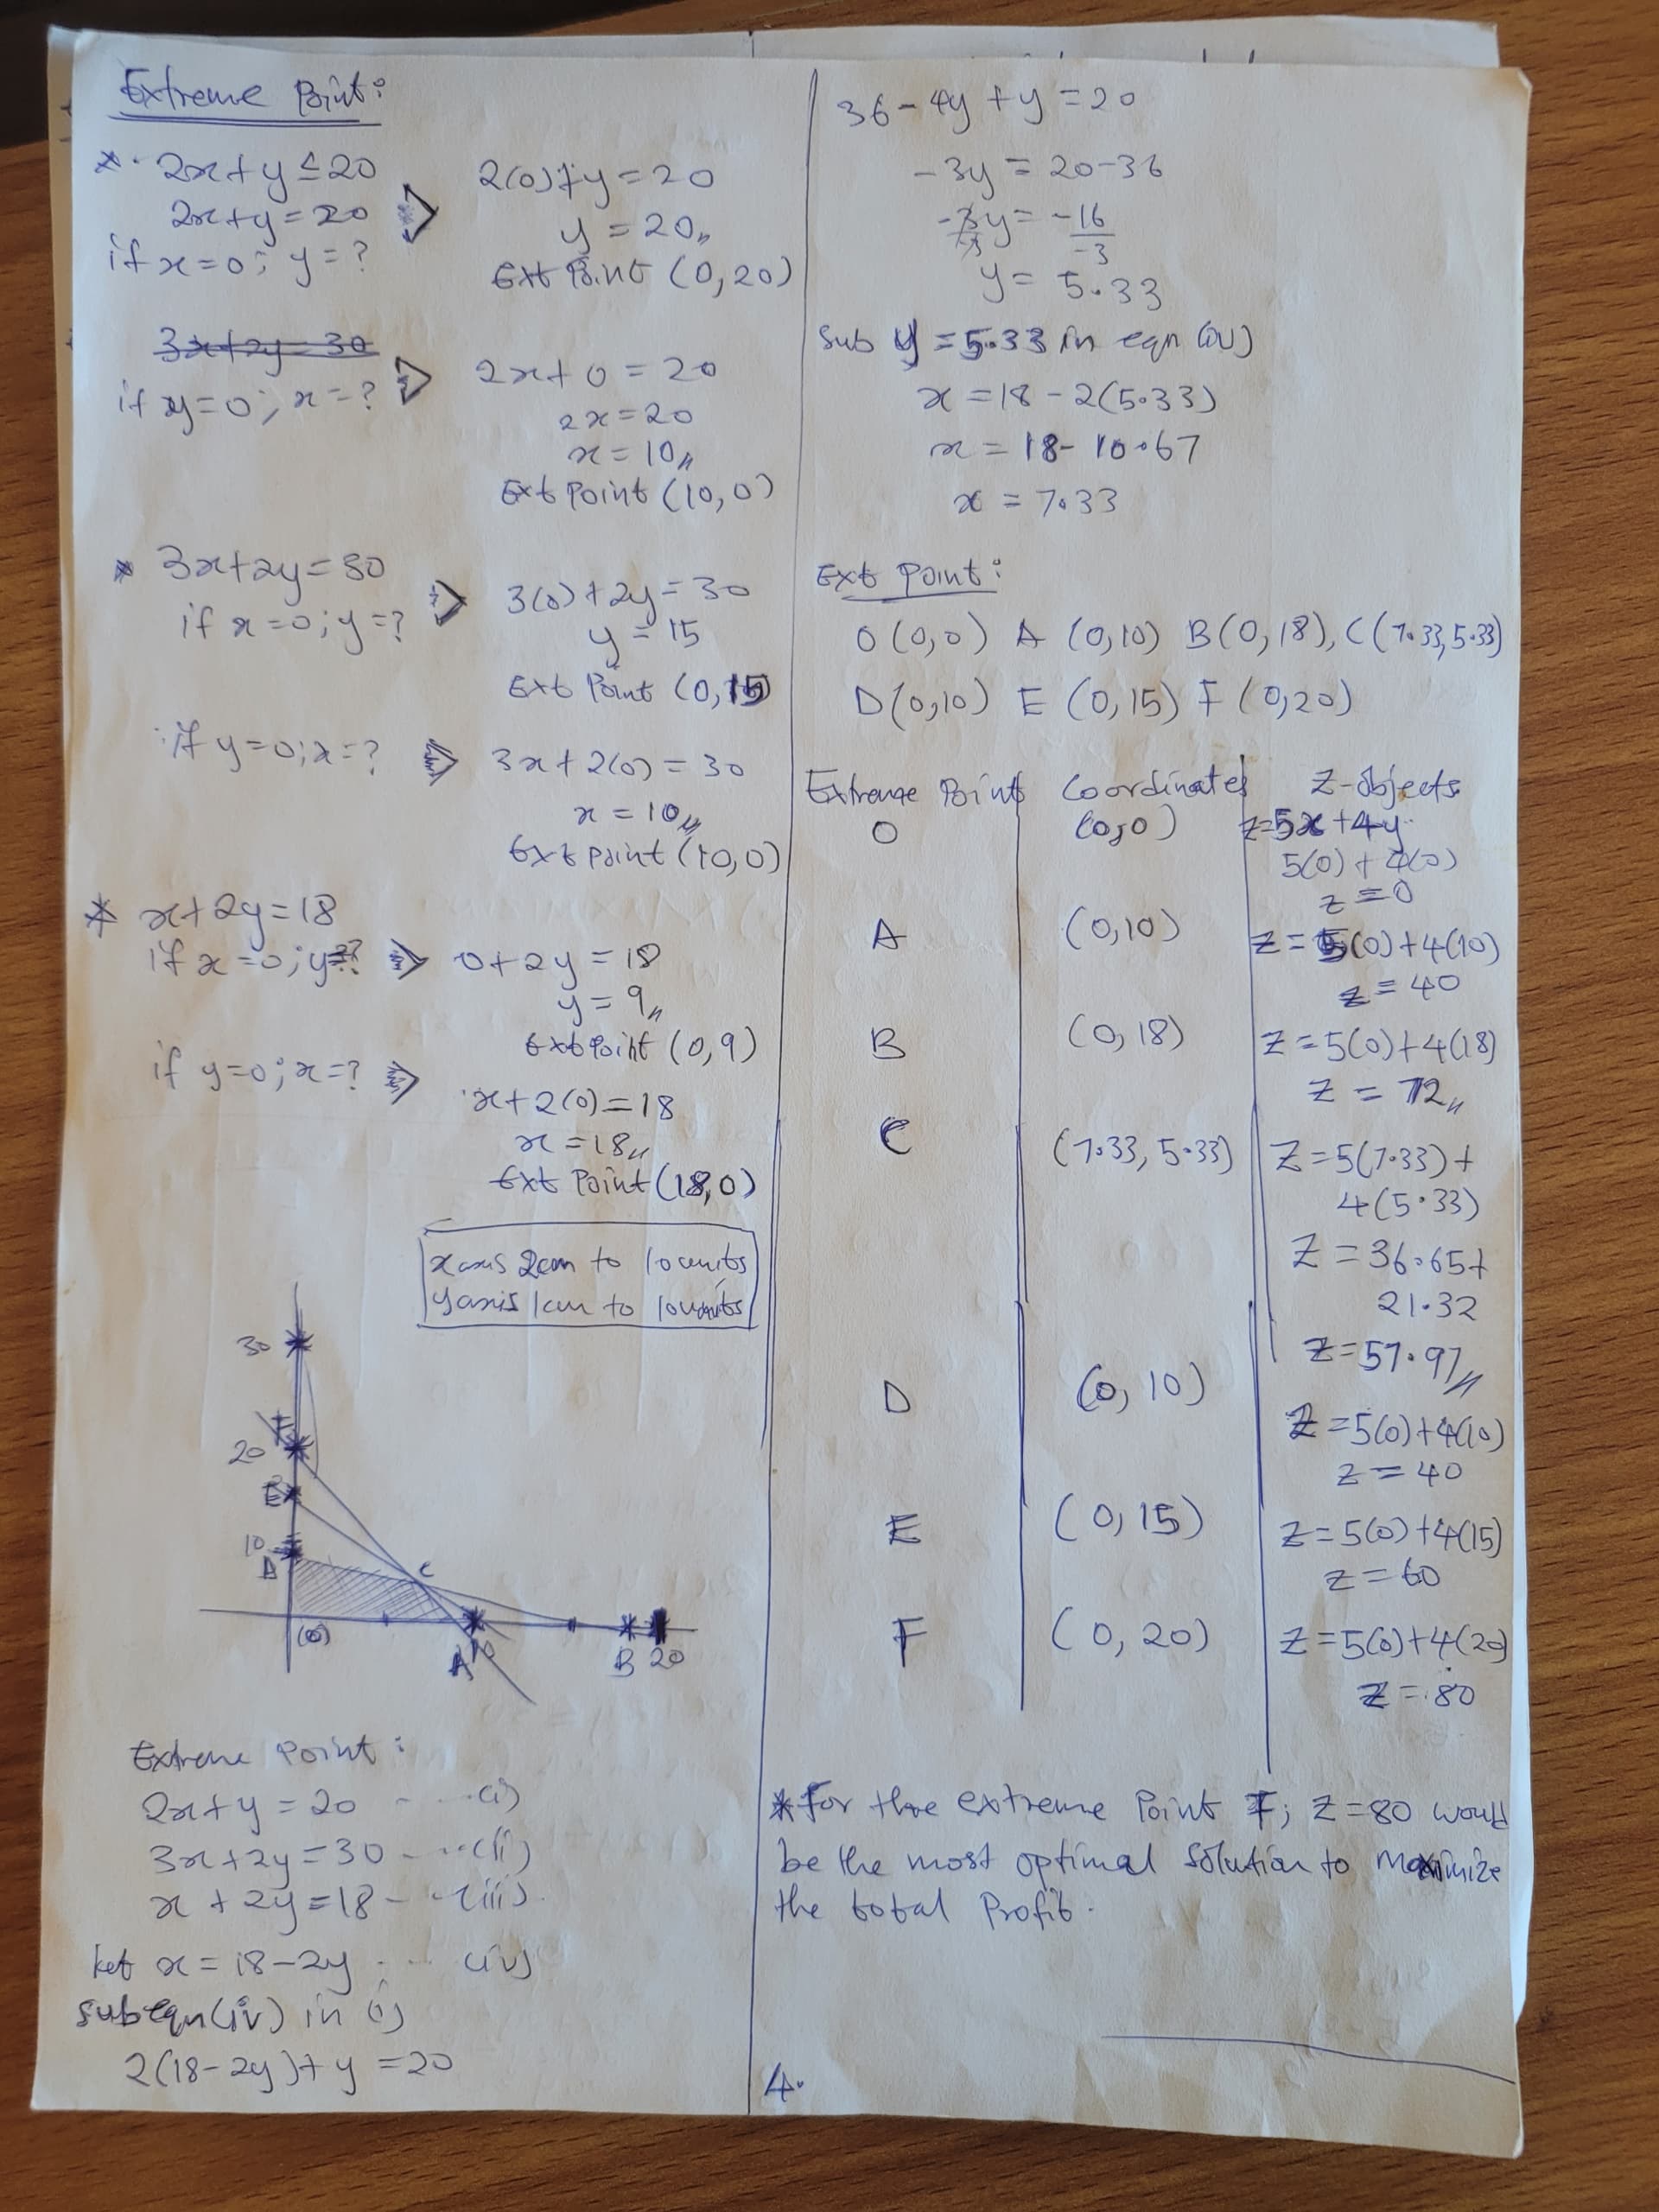 Extreme Point:
* 2x+y ≤ 20
2x+y = 20
if x=0; y=?
2(0)+y = 20
y = 20
Ext Point (0,20)
3x+2y=30
if y=0; x=?
2x+0 = 20
2x=20
x=10
Ext Point (10,0)
* 3x+2y=30
if x=0; y=?
3(0)+2y=30
y=15
Ext Point (0,15)
if y=0; x=?
3x+2(0)=30
x=10
Ext Point (10,0)
* x+2y=18
if x=0; y=?
0+2y=18
y=9
Ext Point (0,9)
if y=0; x=?
x+2(0)=18
x=18
Ext Point (18,0)
x axis 2cm to 10 units
y axis 1cm to 10 units
30
F
20
E
10
D
C
(0)
A 10
B 20
Extreme Point:
2x+y=20 - - - (i)
3x+2y=30 - - - (ii)
x+2y=18 - - - (iii)
let x=18-2y - - - (iv)
sub eqn(iv) in (i)
2(18-2y)+y=20
36-4y+y=20
-3y = 20-36
-3y/-3 = -16/-3
y = 5.33
Sub y=5.33 in eqn (iv)
x=18-2(5.33)
x = 18-10.67
x = 7.33
Ext Point:
O(0,0) A (0,10) B(0,18), C(7.33,5.33)
D(0,10) E (0,15) F (0,20)
Extreme Point Coordinates Z-objects
O (0,0) z=5x+4y
5(0)+4(0)
z=0
A (0,10) z=5(0)+4(10)
z=40
B (0,18) z=5(0)+4(18)
z=72
C (7.33, 5.33) z=5(7.33)+
4(5.33)
z=36.65+
21.32
z=57.97
D (0,10) z=5(0)+4(10)
z=40
E (0,15) z=5(0)+4(15)
z=60
F (0,20) z=5(0)+4(20)
z=80
* For the extreme Point F; z=80 would
be the most optimal solution to Maximize
the total Profit.
4.